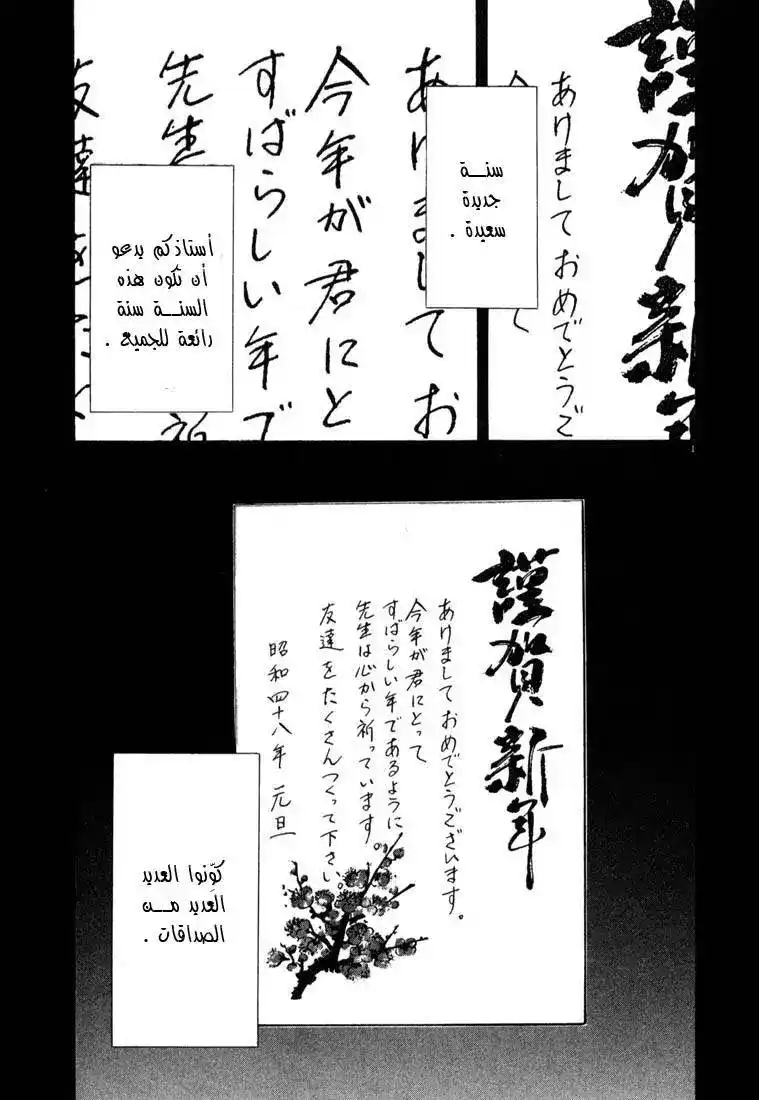 謹賀新年
あけましておめでとうご
سنــة
جديدة
سعيدة .
あ けましてお
今年が君にと
すばらしい年で
先生
祈
友達
أستاذكم يدعو
أن تكون هذه
السنــة سنة
رائعة للجميع .
謹賀新年
あけましておめでとうございます。
今年が君にとって
すばらしい年であるように
先生は心から祈っています。
友達をたくさんつくって下さい。
昭和四十八年 元旦
كوِّنوا العديد
العديد مــن
الصداقات .